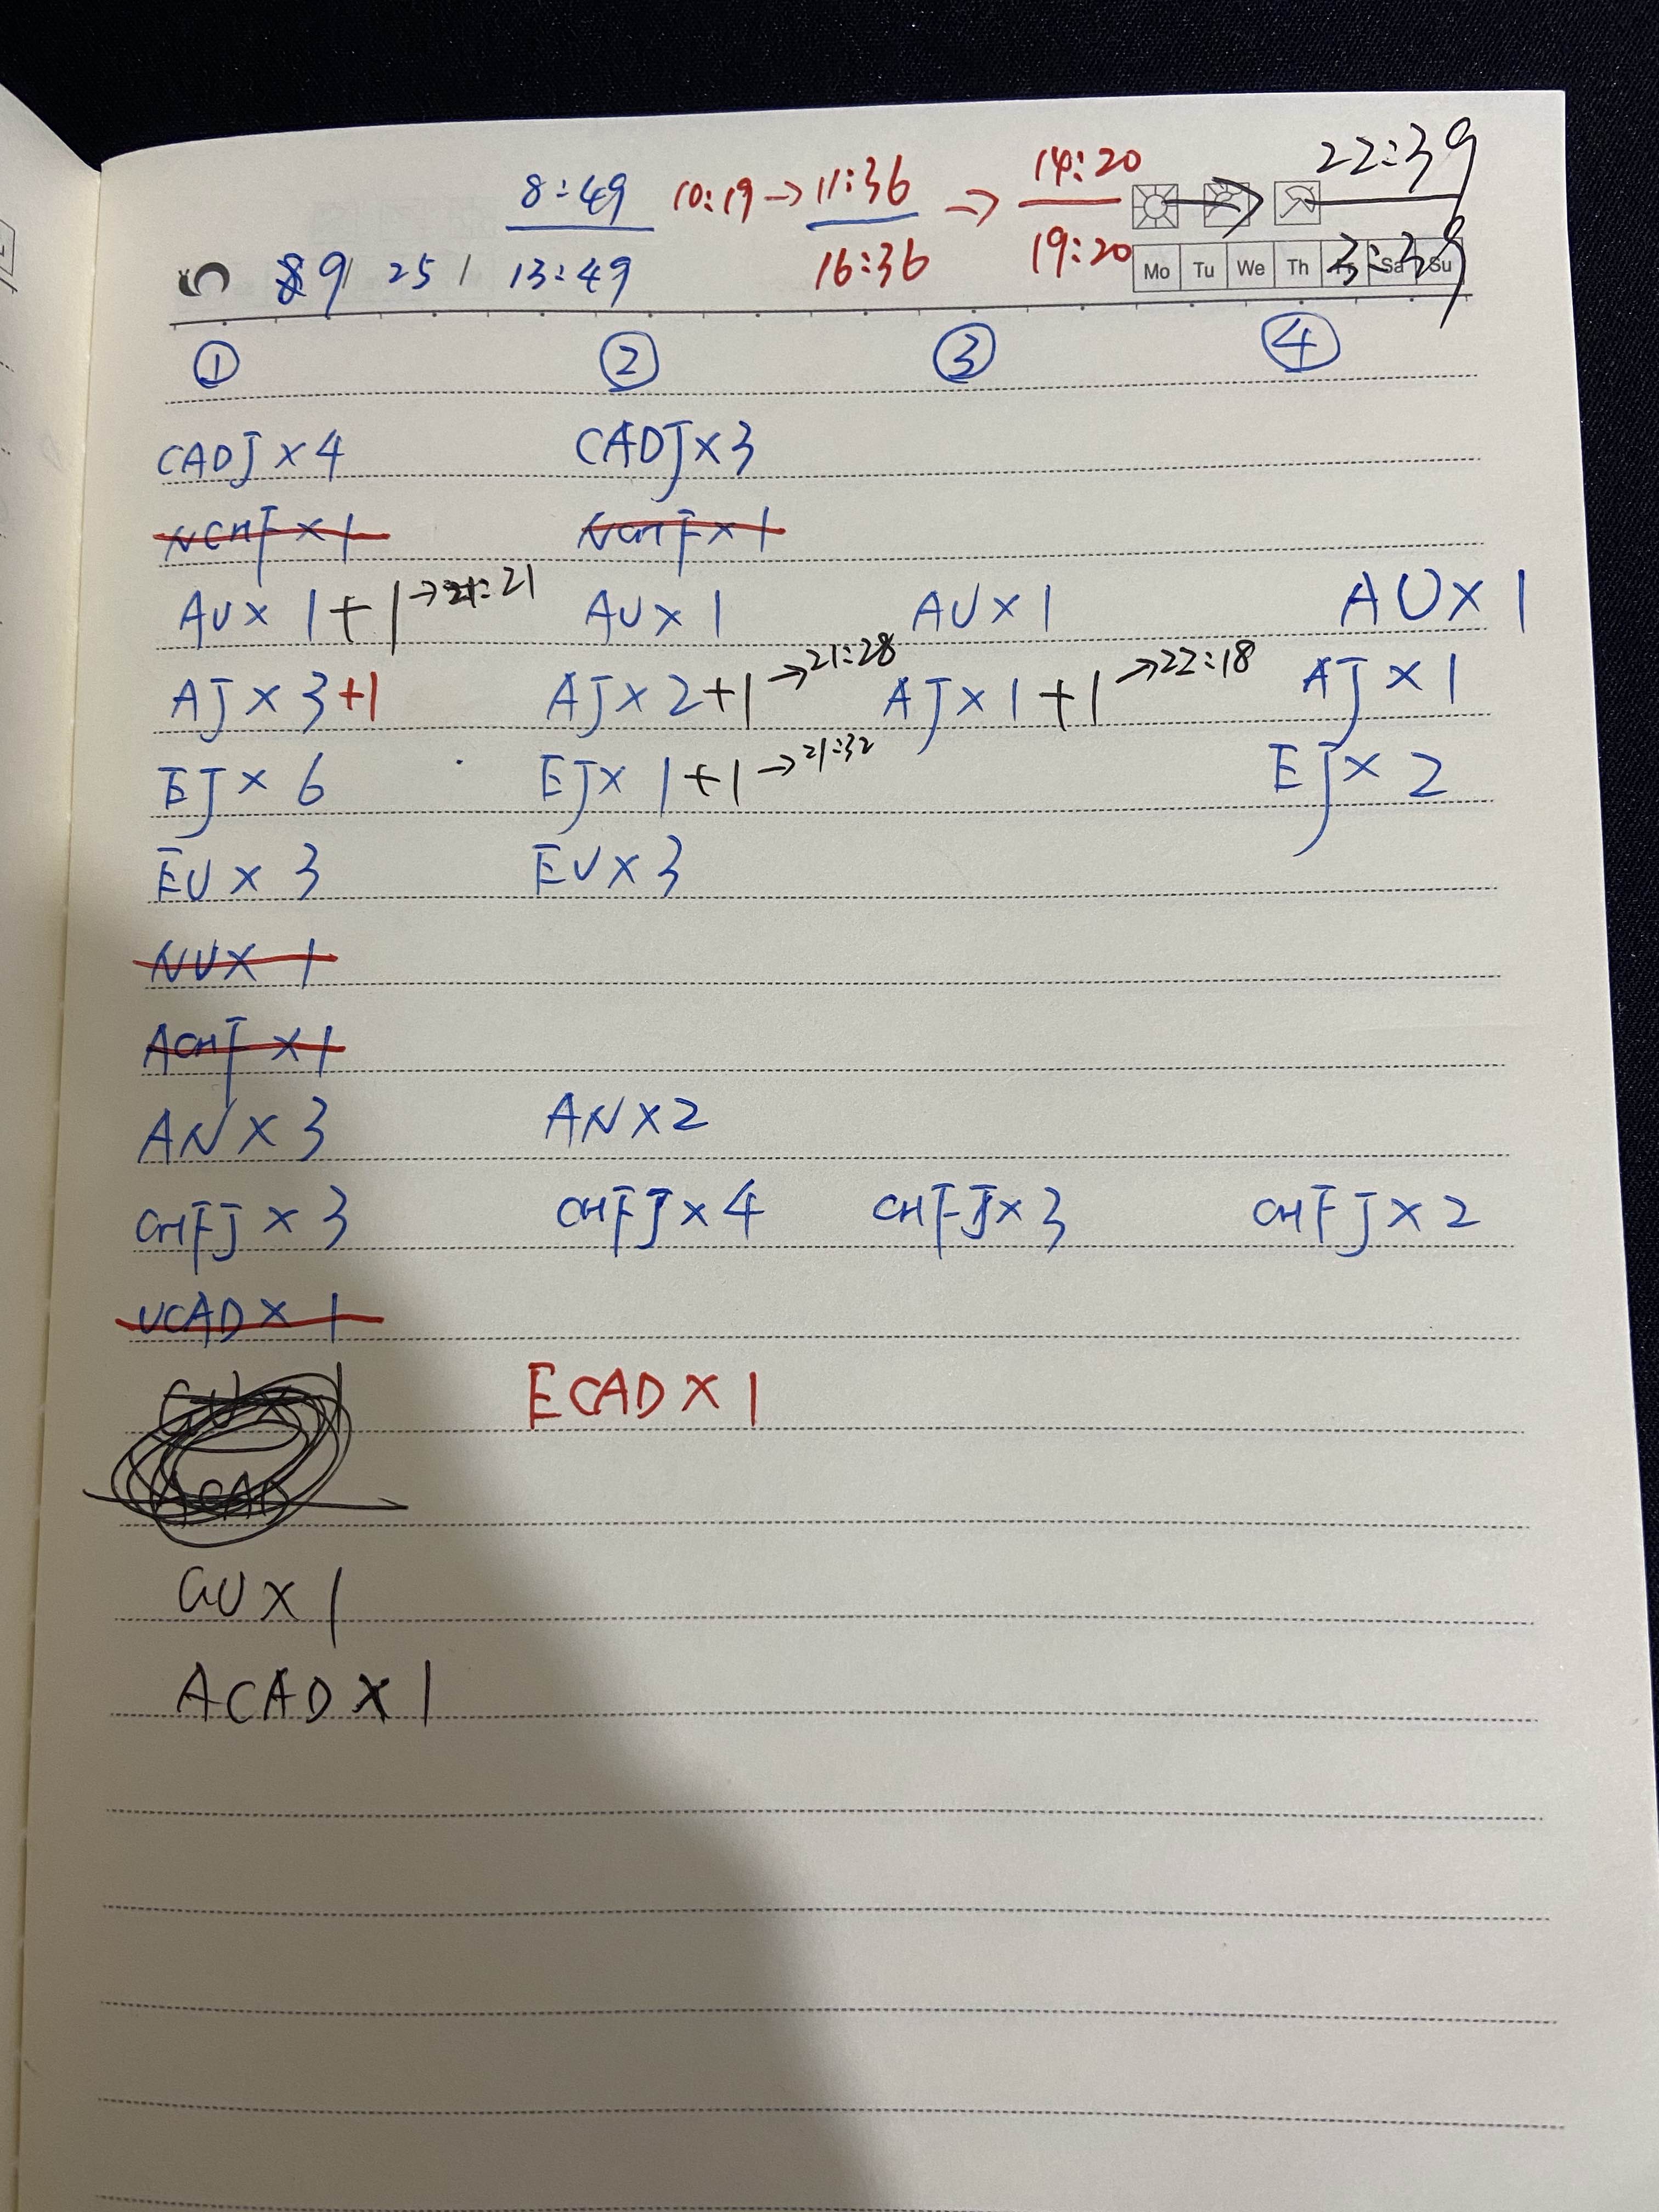 8:49 10:19 → 11:36 ⇒ 14:20 → 22:39
9/ 25 / 13:49 16:36 19:20 3:39
Mo Tu We Th Sa Su
① ② ③ ④
CADJ × 4 CADJ × 3
NCHF × 1 NCHF × 1
AU × 1 + 1 → 21:21 AU × 1 AU × 1 AU × 1
AJ × 3 +1 AJ × 2 + 1 → 21:28 AJ × 1 + 1 → 22:18 AJ × 1
EJ × 6 EJ × 1 + 1 → 21:32 EJ × 2
EU × 3 EU × 3
NU × 1
ACHF × 1
AN × 3 AN × 2
CHFJ × 3 CHFJ × 4 CHFJ × 3 CHFJ × 2
UCAD × 1
ECAD × 1
ACAD
GU × 1
ACAD × 1